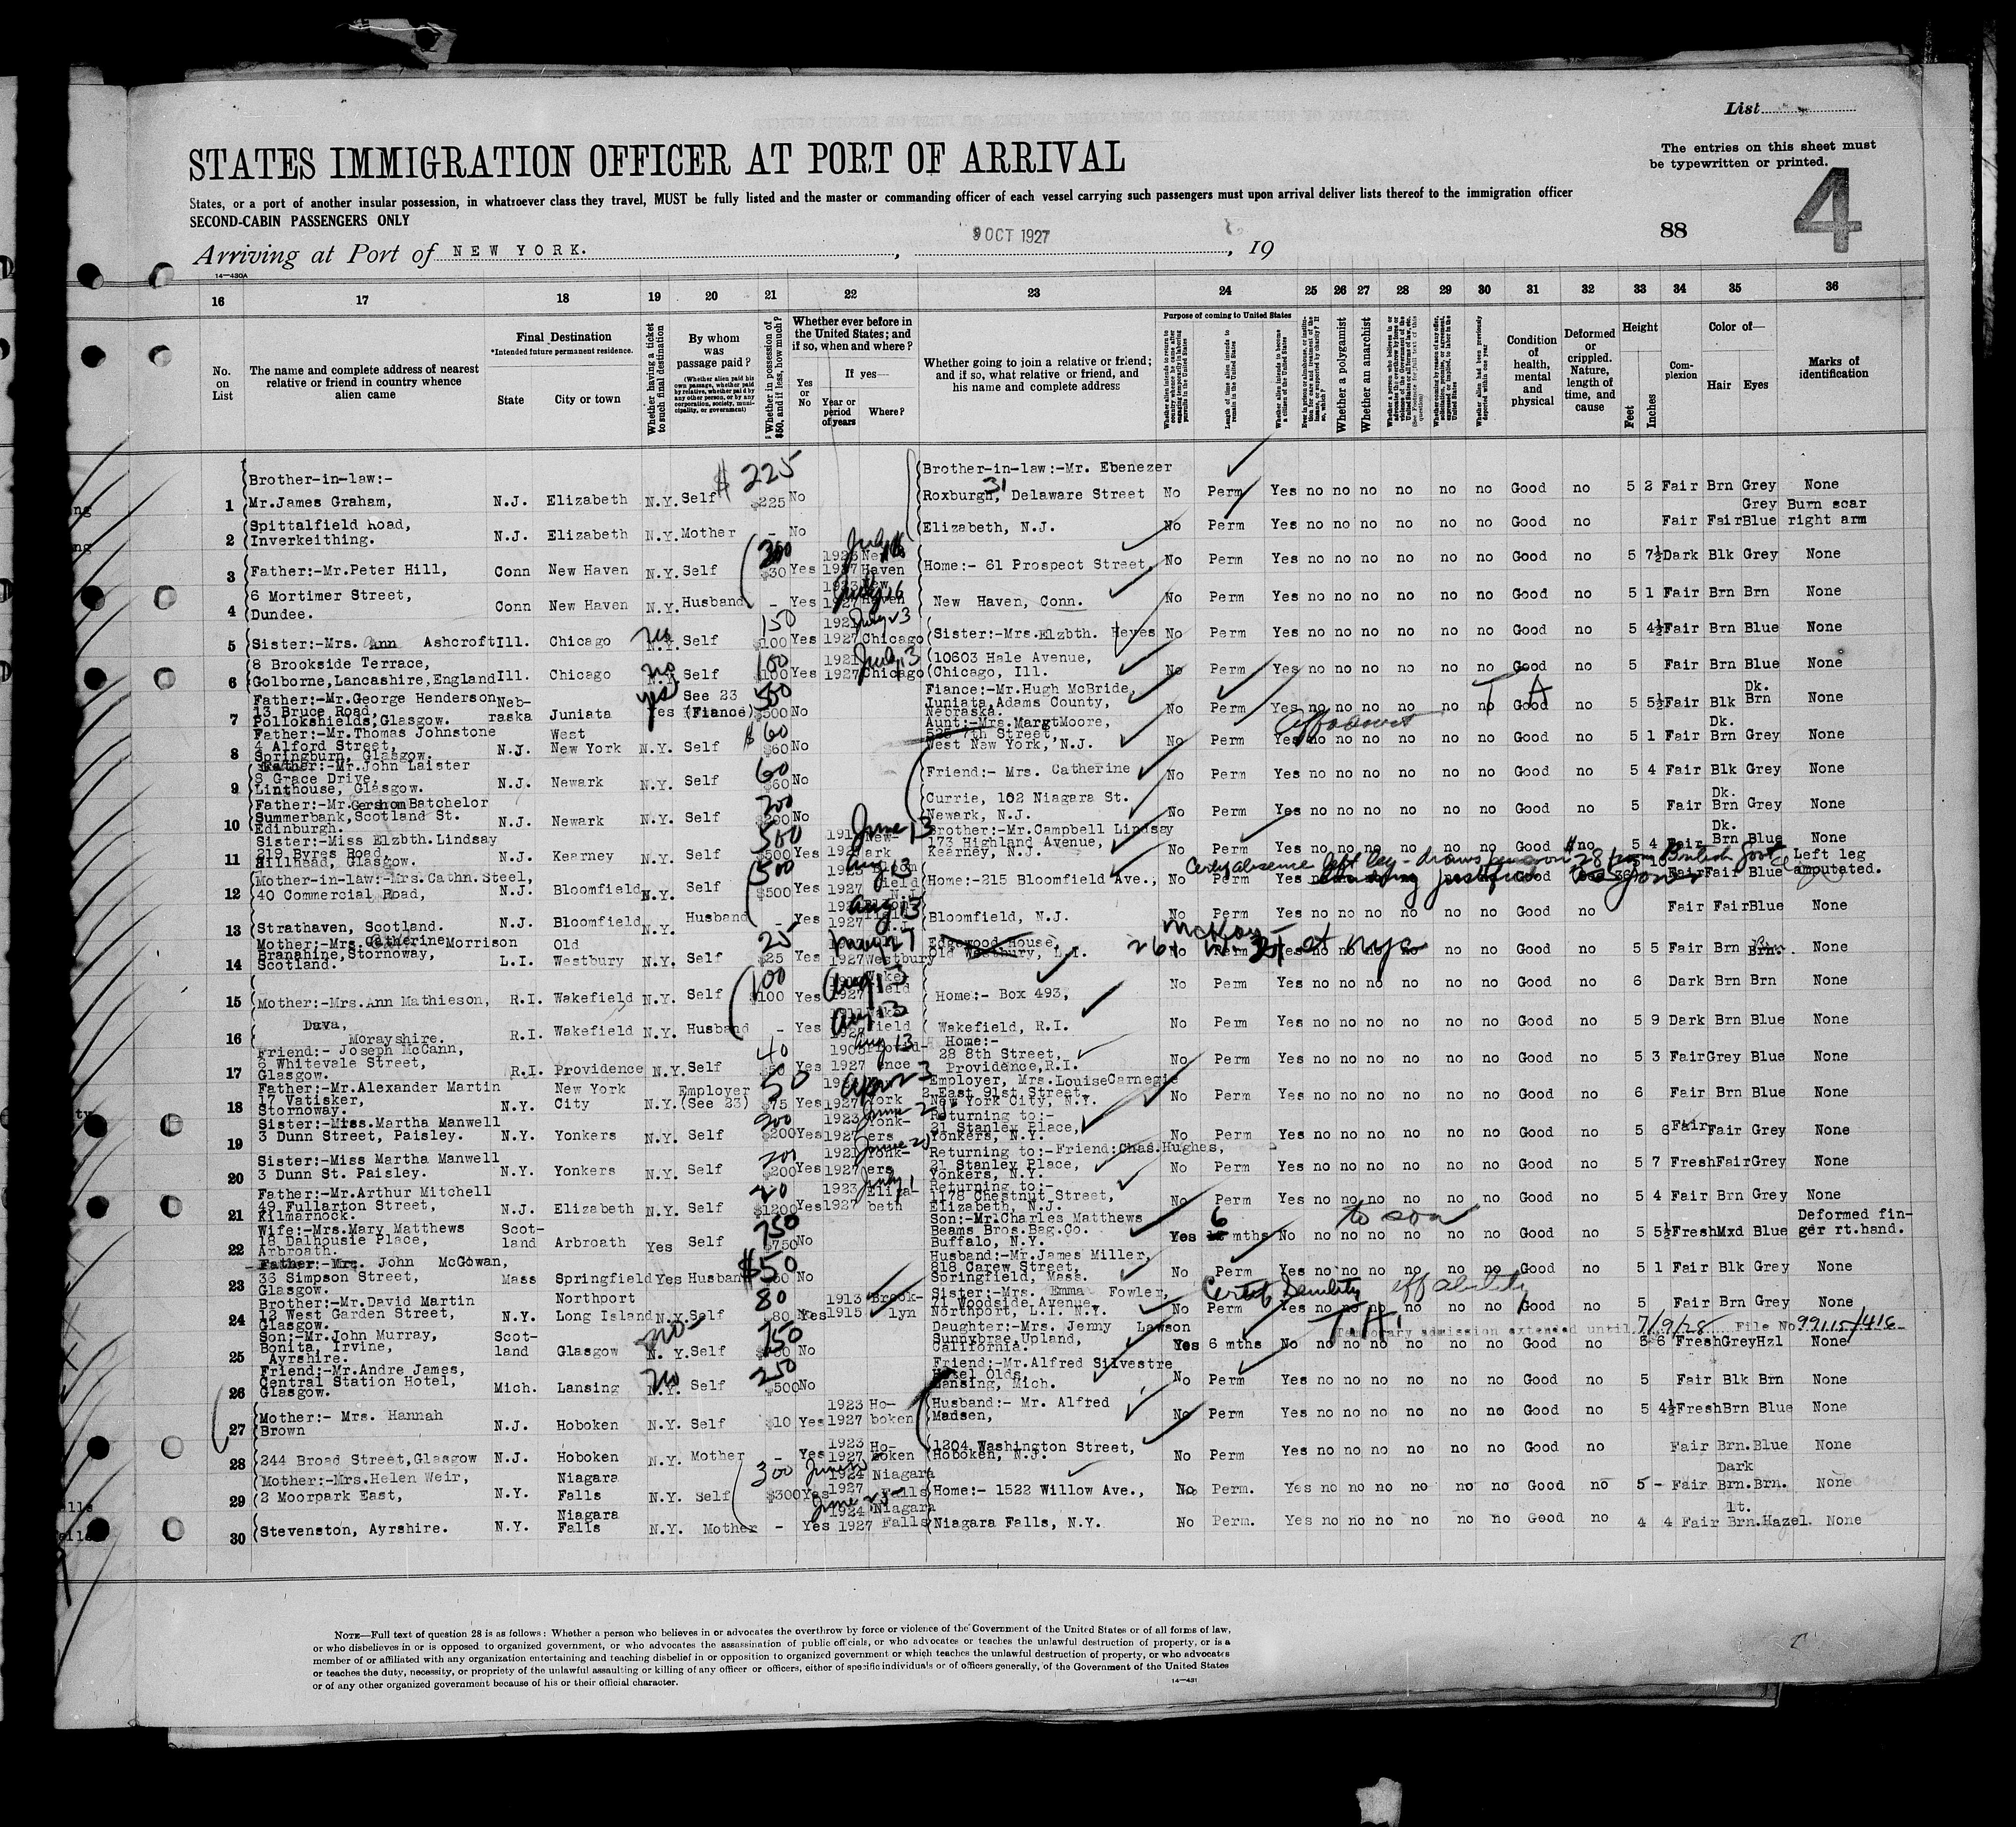 List
STATES IMMIGRATION OFFICER AT PORT OF ARRIVAL
The entries on this sheet must
be typewritten or printed.
4
States, or a port of another insular possession, in whatsoever class they travel, MUST be fully listed and the master or commanding officer of each vessel carrying such passengers must upon arrival deliver lists thereof to the immigration officer
SECOND-CABIN PASSENGERS ONLY
88
Arriving at Port of NEW YORK. , 9 OCT 1927 , 19
14—430A
16 17 18 19 20 21 22 23 24 25 26 27 28 29 30 31 32 33 34 35 36
No. on List
The name and complete address of nearest relative or friend in country whence alien came
Final Destination
*Intended future permanent residence.
State City or town
Whether having a ticket to such final destination
By whom was passage paid?
(Whether alien paid his own passage, whether paid by relative, whether paid by any other person, or by any corporation, society, municipality, or government)
Whether in possession of $50, and if less, how much?
Whether ever before in the United States; and if so, when and where?
Yes or No
If yes—
Year or period of years
Where?
Whether going to join a relative or friend; and if so, what relative or friend, and his name and complete address
Purpose of coming to United States
Length of time alien intends to remain in the United States
Whether alien intends to become a citizen of the United States
Whether a polygamist
Whether an anarchist
Condition of health, mental and physical
Deformed or crippled. Nature, length of time, and cause
Height
Feet Inches
Complexion
Color of—
Hair Eyes
Marks of identification
Brother-in-law:- $225 Brother-in-law:-Mr. Ebenezer
1 Mr.James Graham, N.J. Elizabeth N.Y. Self $225 No Roxburgh, 31 Delaware Street No Perm Yes no no no no no no Good no 5 2 Fair Brn Grey None
Spittalfield Road,
2 Inverkeithing. N.J. Elizabeth N.Y. Mother - No Elizabeth, N.J. No Perm Yes no no no no no no Good no Fair Fair Grey Blue Burn scar right arm
3 Father:-Mr.Peter Hill, Conn New Haven N.Y. Self 300 $30 Yes 1923 1927 New Haven Home:- 61 Prospect Street, No Perm Yes no no no no no no Good no 5 7½ Dark Blk Grey None
6 Mortimer Street,
4 Dundee. Conn New Haven N.Y. Husband - Yes 1923 1927 New Haven July 16 New Haven, Conn. No Perm Yes no no no no no no Good no 5 1 Fair Brn Brn None
5 Sister:-Mrs. Ann Ashcroft Ill. Chicago no N.Y. Self 150 $100 Yes 1927 Chicago July 23 Sister:-Mrs.Elzbth. Heyes No Perm Yes no no no no no no Good no 5 4½ Fair Brn Blue None
8 Brookside Terrace, 10603 Hale Avenue,
6 Golborne,Lancashire,England Ill. Chicago no N.Y. Self 100 $100 Yes 1921 1927 Chicago July 13 Chicago, Ill. No Perm Yes no no no no no no Good no 5 Fair Brn Blue None
Father:-Mr.George Henderson Fiance:-Mr.Hugh McBride, T A
7 13 Bruce Road, Pollokshields,Glasgow. Nebraska Juniata yes Yes See 23 (Fiance) 500 $500 No Juniata,Adams County, Nebraska. No Perm Yes no no no no no no Good no 5 5½ Fair Blk Dk. Brn None
Father:-Mr.Thomas Johnstone Aunt:-Mrs.Margt Moore,
8 4 Alford Street, Springburn, Glasgow. N.J. West New York N.Y. Self $60 $60 No 525 7th Street, West New York, N.J. No Perm Yes no no no no no no Good no 5 1 Fair Dk. Brn Grey None
Father:-Mr.John Laister
9 8 Grace Drive, Linthouse, Glasgow. N.J. Newark N.Y. Self 60 $60 No Friend:- Mrs. Catherine No Perm Yes no no no no no no Good no 5 4 Fair Blk Grey None
Father:-Mr.Gershom Batchelor
10 Summerbank,Scotland St. Edinburgh. N.J. Newark N.Y. Self 200 $200 No Currie, 102 Niagara St. Newark, N.J. No Perm Yes no no no no no no Good no 5 Fair Dk. Brn Grey None
Sister:-Miss Elzbth.Lindsay Brother:-Mr.Campbell Lindsay
11 219 Byres Road, Hillhead, Glasgow. N.J. Kearney N.Y. Self 500 $500 Yes Newark June 13 173 Highland Avenue, Kearney, N.J. No Perm Yes no no no no no no Good no 5 4 Fair Dk. Brn Blue None
Mother-in-law:-Mrs.Cathn.Steel, left leg - draws pension $28 from British Govt
12 40 Commercial Road, N.J. Bloomfield N.Y. Self 500 $500 Yes 1927 Aug 13 Home:-215 Bloomfield Ave., No Perm Yes Good Fair Fair Blue Left leg amputated.
13 Strathaven, Scotland. N.J. Bloomfield N.Y. Husband - Yes 1927 Aug 13 Bloomfield, N.J. No Perm Yes no no no no no no Good no Fair Fair Blue None
Mother:-Mrs.Catherine Morrison McKay
14 Branahine,Stornoway, Scotland. L.I. Old Westbury N.Y. Self 25 $25 Yes 1927 Westbury Edgewood House, Old Westbury, L.I. 26 W 31 st nyc No Perm Yes no no no no no no Good no 5 5 Fair Brn Brn. None
15 Mother:-Mrs.Ann Mathieson, R.I. Wakefield N.Y. Self 100 $100 Yes 1927 Wakefield Aug 13 Home:- Box 493, No Perm Yes no no no no no no Good no 6 Dark Brn Brn None
Dava,
16 Morayshire. R.I. Wakefield N.Y. Husband - Yes 1911 1927 Wakefield Aug 13 Wakefield, R.I. No Perm Yes no no no no no no Good no 5 9 Dark Brn Blue None
Friend:- Joseph McCann, Home:-
17 6 Whitevale Street, Glasgow. R.I. Providence N.Y. Self 40 Yes 1905 1927 Providence Aug 13 28 8th Street, Providence,R.I. No Perm Yes no no no no no no Good no 5 3 Fair Grey Blue None
Father:-Mr.Alexander Martin Employer, Mrs.Louise Carnegie
18 17 Vatisker, Stornoway. N.Y. New York City N.Y. Employer (See 23) 50 $75 Yes 1927 York 2 East 91st Street, New York City, N.Y. No Perm Yes no no no no no no Good no 6 Fair Brn Blue None
Sister:-Miss.Martha Manwell Returning to:-
19 3 Dunn Street, Paisley. N.Y. Yonkers N.Y. Self 200 $200 Yes 1923 1927 Yonkers 21 Stanley Place, Yonkers, N.Y. No Perm Yes no no no no no no Good no 5 6 Fair Fair Grey None
Sister:-Miss Martha Manwell Returning to:-Friend:Chas.Hughes,
20 3 Dunn St. Paisley. N.Y. Yonkers N.Y. Self 200 $200 Yes 1921 1927 Yonkers June 20 21 Stanley Place, Yonkers, N.Y. No Perm Yes no no no no no no Good no 5 7 Fresh Fair Grey None
Father:-Mr.Arthur Mitchell Returning to:-
21 49 Fullarton Street, Kilmarnock. N.J. Elizabeth N.Y. Self $1200 Yes 1923 1927 Elizabeth July 1 1178 Chestnut Street, Elizabeth, N.J. No Perm Yes no no no no no no Good no 5 4 Fair Brn Grey None
Wife:-Mrs.Mary Matthews Son:-Mr.Charles Matthews to son
22 18 Dalhousie Place, Arbroath. Scotland Arbroath Yes Self 750 $750 No Beams Bros.Bag.Co. Buffalo, N.Y. Yes 6 mths No no no no no no no Good no 5 5½ Fresh Mxd Blue Deformed finger rt.hand.
Father:-Mr. John McGowan, Husband:-Mr.James Miller,
23 36 Simpson Street, Glasgow. Mass Springfield Yes Husband $50 No 818 Carew Street, Springfield, Mass. No Perm Yes no no no no no no Good no 5 1 Fair Blk Grey None
Brother:-Mr.David Martin Sister:-Mrs. Emma Fowler,
24 12 West Garden Street, Glasgow. N.Y. Northport Long Island N.Y. Self 80 80 Yes 1913 1915 Brooklyn Woodside Avenue, Northport, L.I. N.Y. No Perm Yes no no no no no no Good no 5 Fair Brn Grey None
Son:-Mr.John Murray, Daughter:-Mrs. Jenny Lawson T.A. Temporary admission extended until 7/9/28 File No 99115/416
25 Bonita, Irvine, Ayrshire. Scotland Glasgow no N.Y. Self 150 No Sunnybrae,Upland, California. Yes 6 mths No no no no no no no Good no 5 6 Fresh Grey Hzl None
Friend:-Mr.Andre James, Friend:-Mr.Alfred Silvestre
26 Central Station Hotel, Glasgow. Mich. Lansing no N.Y. Self 250 $500 No Hotel Olds, Lansing, Mich. No Perm Yes no no no no no no Good no 5 Fair Blk Brn None
27 Mother:- Mrs. Hannah Brown N.J. Hoboken N.Y. Self $10 Yes 1923 1927 Hoboken Husband:- Mr. Alfred Madsen, No Perm Yes no no no no no no Good no 5 4½ Fresh Brn Blue None
28 244 Broad Street,Glasgow N.J. Hoboken N.Y. Mother - Yes 1923 1927 Hoboken 1204 Washington Street, Hoboken, N.J. No Perm Yes no no no no no no Good no Fair Brn. Blue None
Mother:-Mrs.Helen Weir,
29 2 Moorpark East, N.Y. Niagara Falls N.Y. Self 300 $300 Yes 1924 1927 Niagara Falls Home:- 1522 Willow Ave., No Perm. Yes no no no no no no Good no 5 - Fair Dark Brn. Brn. None
30 Stevenston, Ayrshire. N.Y. Niagara Falls N.Y. Mother - Yes 1924 1927 Niagara Falls Niagara Falls, N.Y. No Perm. Yes no no no no no no Good no 4 4 Fair lt. Brn. Hazel. None
NOTE—Full text of question 28 is as follows: Whether a person who believes in or advocates the overthrow by force or violence of the Government of the United States or of all forms of law,
or who disbelieves in or is opposed to organized government, or who advocates the assassination of public officials, or who advocates or teaches the unlawful destruction of property, or is a
member of or affiliated with any organization entertaining and teaching disbelief in or opposition to organized government or which teaches the unlawful destruction of property, or who advocates
or teaches the duty, necessity, or propriety of the unlawful assaulting or killing of any officer or officers, either of specific individuals or of officers generally, of the Government of the United States
or of any other organized government because of his or their official character.
14—431